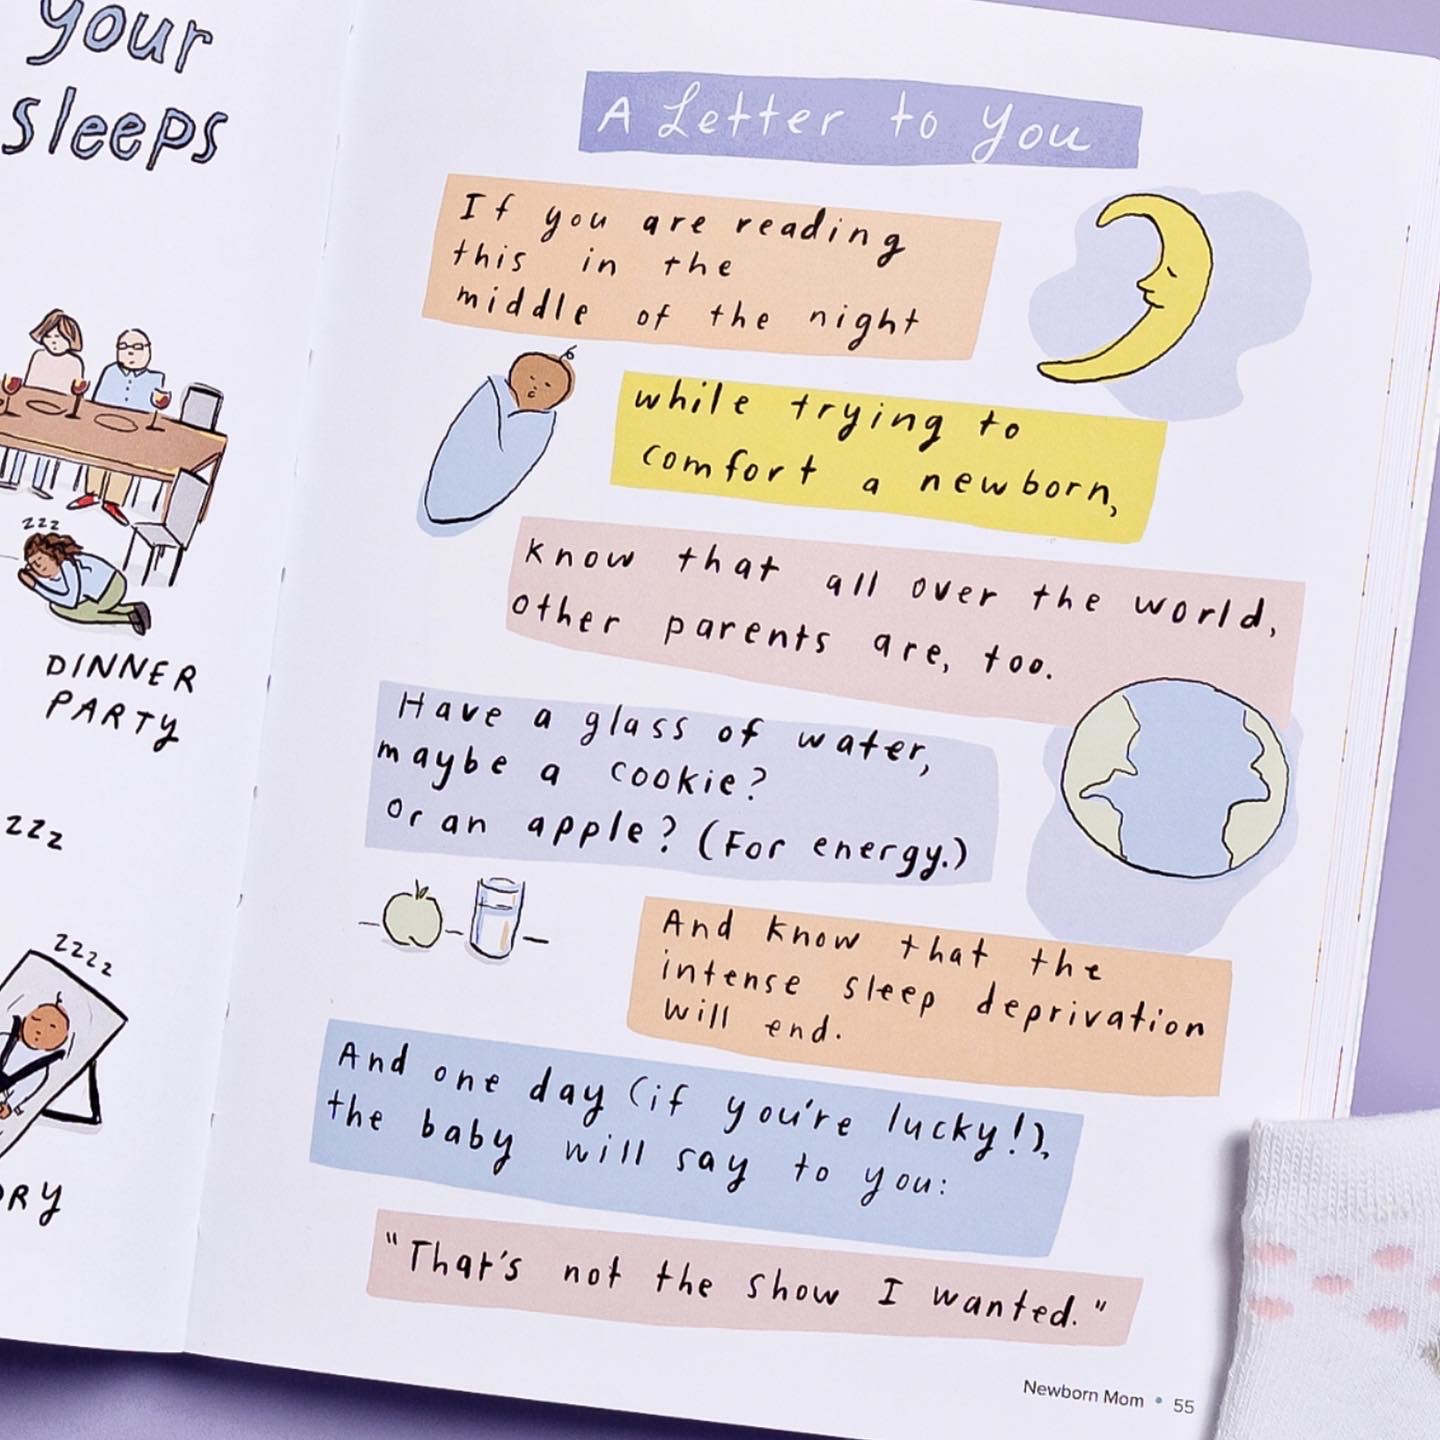 your
sleeps
zzz
DINNER
PARTY
zzz
zzzz
A Letter to You
If you are reading
this in the
middle of the night
while trying to
comfort a newborn,
know that all over the world,
other parents are, too.
Have a glass of water,
maybe a cookie?
or an apple? (For energy.)
And know that the
intense sleep deprivation
will end.
And one day (if you're lucky!),
the baby will say to you:
"That's not the show I wanted."
Newborn Mom • 55